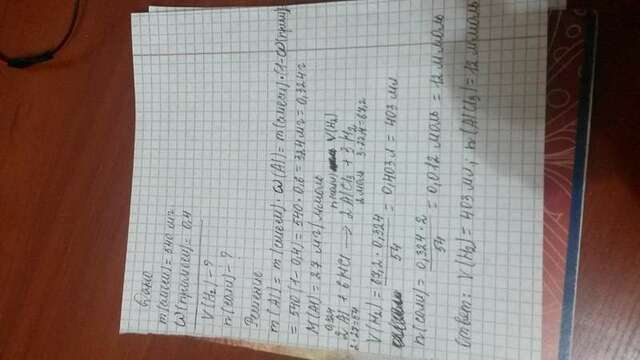 Дано
m(смеси) = 540 мг
ω(примеси) = 0,4
V(H₂) - ?
n(соли) - ?
Решение
m(Al) = m(смеси) · ω(Al) = m(смеси) · (1-ω(прим))
= 540(1-0,4) = 540 · 0,6 = 324 мг = 0,324 г
M(Al) = 27 мг/ммоль
0,324 n(соли) V(H₂)
2Al + 6HCl → 2AlCl₃ + 3H₂
2·27=54 2 моль 3·22,4=67,2
V(H₂) = 67,2 · 0,324 / 54 = 0,403 л = 403 мл
n(соли) = 0,324 · 2 / 54 = 0,012 моль = 12 ммоль
Ответ: V(H₂) = 403 мл; n(AlCl₃) = 12 ммоль